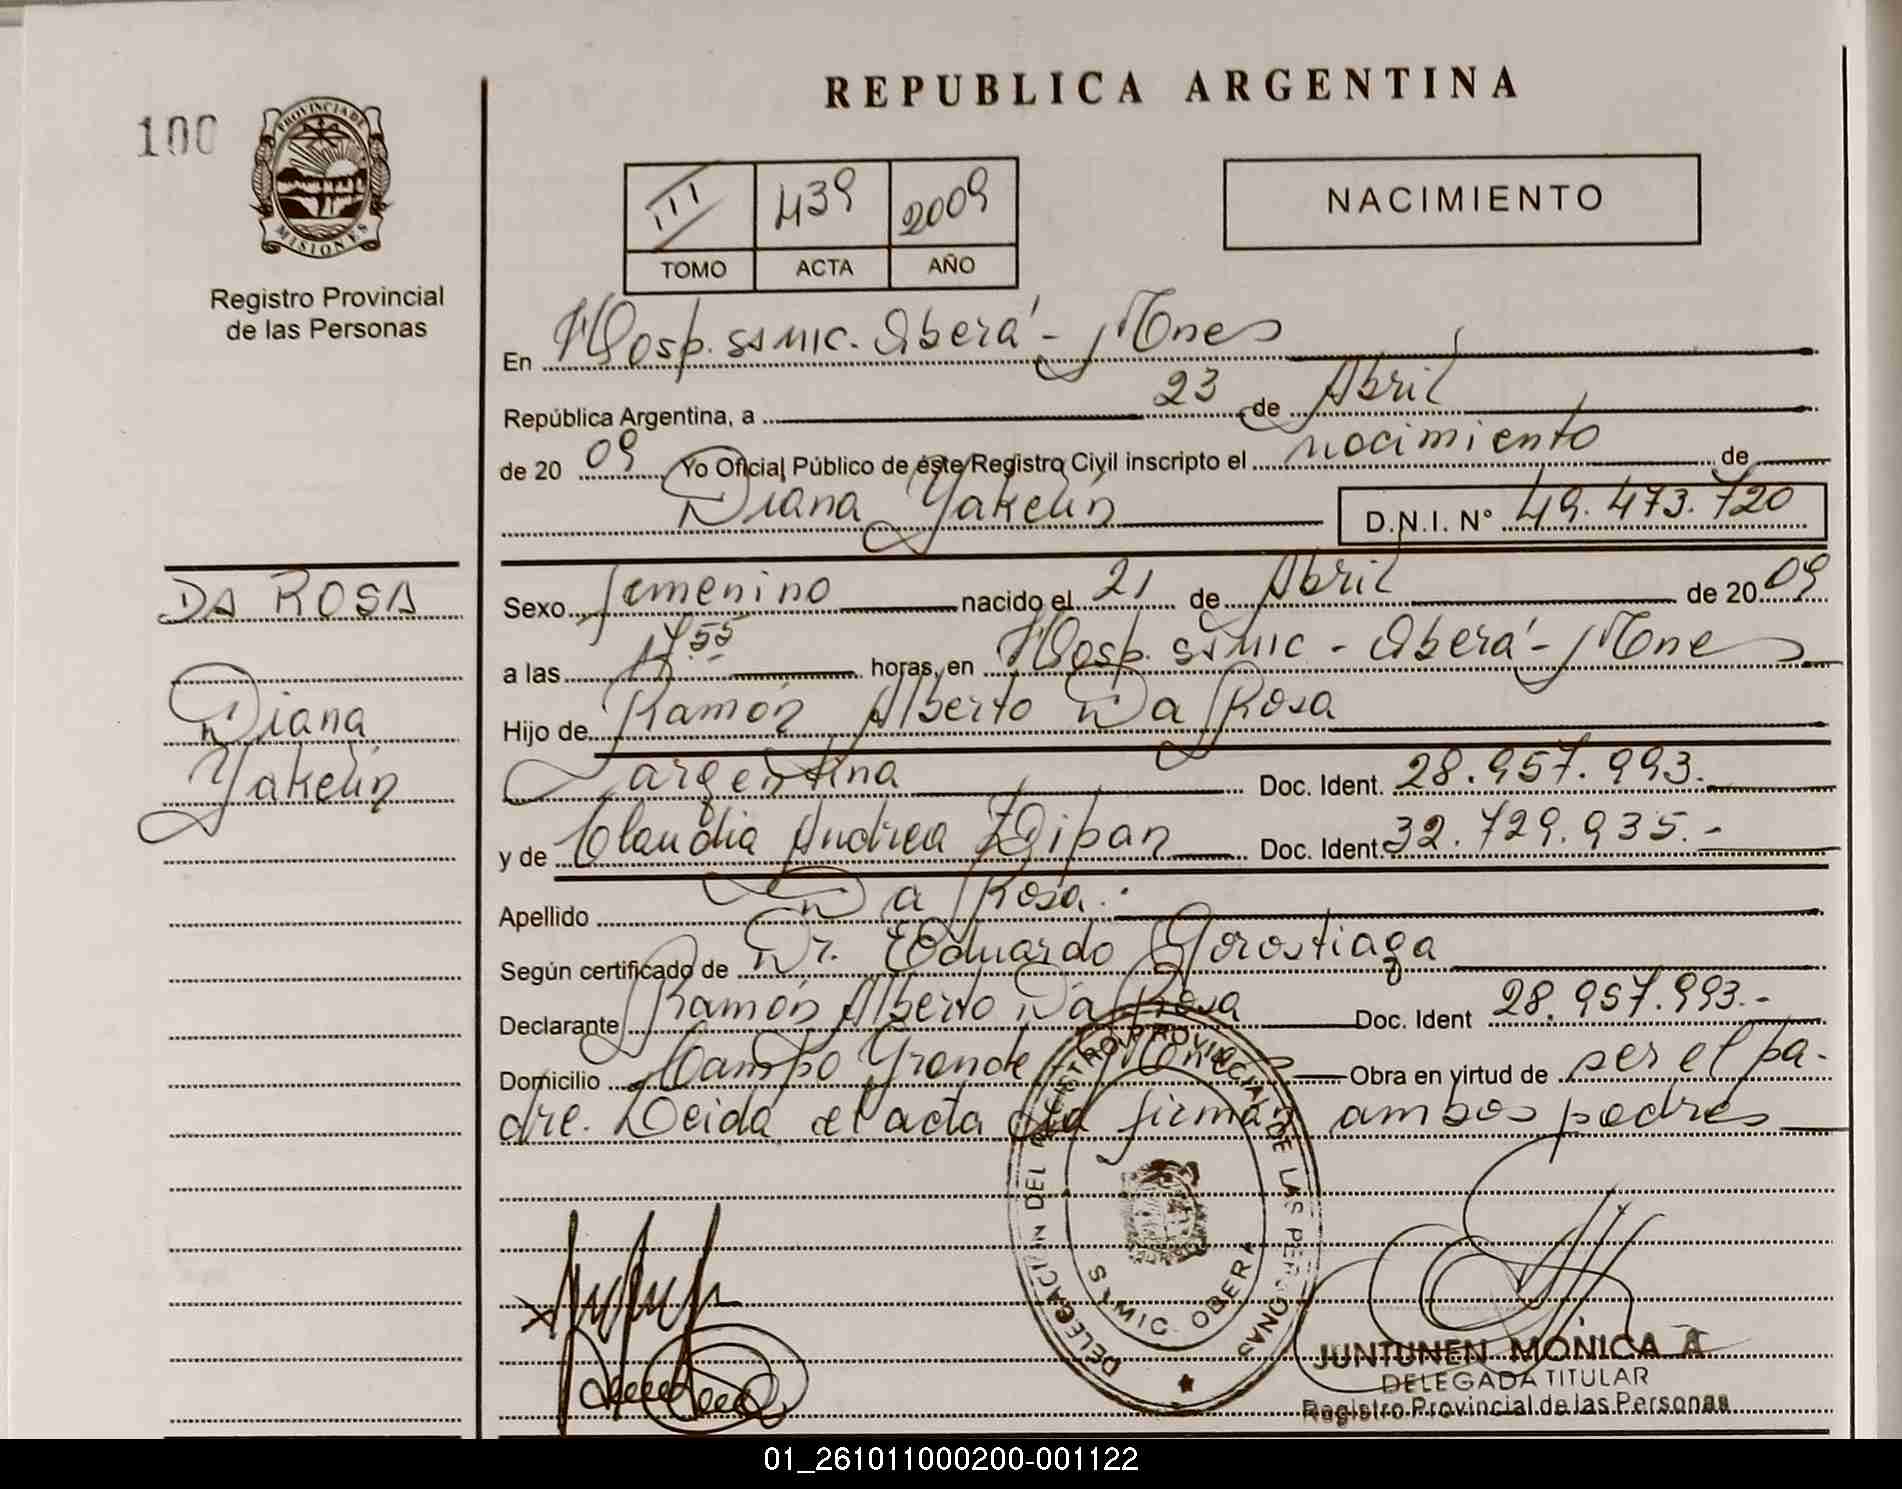 REPUBLICA ARGENTINA
100
PROVINCIA DE
MISIONES
Registro Provincial
de las Personas
III 439 2009
TOMO ACTA AÑO
NACIMIENTO
En Hosp. SSMIC. Oberá - Mnes
República Argentina, a 23 de Abril
de 20 09 Yo Oficial Público de éste Registro Civil inscripto el nacimiento de
Diana Yakelin D.N.I. N° 49.473.720
DA ROSA
Diana
Yakelin
Sexo femenino nacido el 21 de Abril de 20 09
a las 17 55 horas, en Hosp. SSMIC - Oberá - Mnes
Hijo de Ramón Alberto Da Rosa
argentina Doc. Ident. 28.957.993.
y de Claudia Andrea Doc. Ident. 32.729.935.-
Apellido Da Rosa.
Según certificado de Dr. Eduardo Gorostiaga
Declarante Ramón Alberto Da Rosa Doc. Ident 28.957.993.-
Domicilio Campo Grande Mnes Obra en virtud de ser el pa-
dre. Leida el acta la firman ambos padres
DELEGACIÓN DEL REGISTRO PROVINCIAL DE LAS PERSONAS
OBERA
JUNTUNEN MONICA A
DELEGADA TITULAR
Registro Provincial de las Personas
01_261011000200-001122